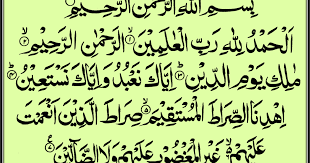 بِسْمِ اللهِ الرَّحْمٰنِ الرَّحِيْمِ
اَلْحَمْدُ لِلّٰهِ رَبِّ الْعٰلَمِيْنَ ۝١ الرَّحْمٰنِ الرَّحِيْمِ ۝٢
مٰلِكِ يَوْمِ الدِّيْنِ ۝٣ اِيَّاكَ نَعْبُدُ وَاِيَّاكَ نَسْتَعِيْنُ ۝٤
اِهْدِنَا الصِّرَاطَ الْمُسْتَقِيْمَ ۝٥ صِرَاطَ الَّذِيْنَ اَنْعَمْتَ
عَلَيْهِمْ ۝٦ غَيْرِ الْمَغْضُوْبِ عَلَيْهِمْ وَلَا الضَّآلِّيْنَ